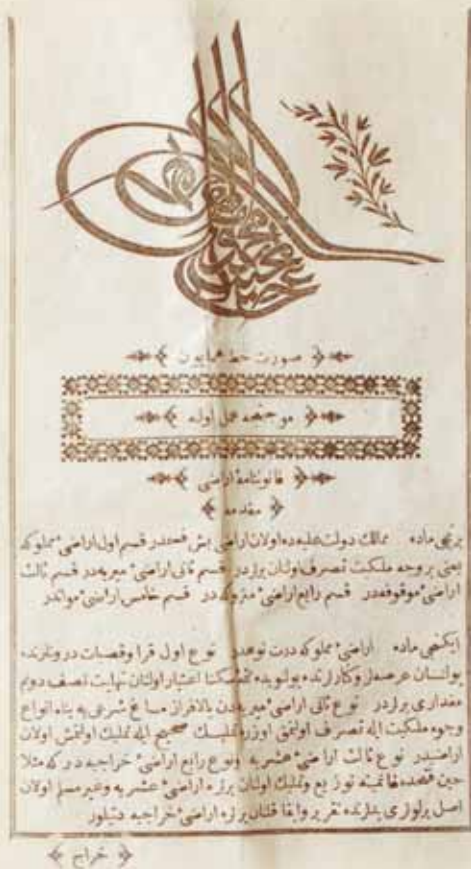 صورت خط همايون
موجبنجه عمل اولنه
قانوننامهٔ اراضی
مقدمه
برنجی ماده ممالك دولت عليه ده اولان اراضی بش قسمدر قسم اول اراضیٔ مملوكه
يعنی بر وجه ملكيت تصرف اولنان يرلردر قسم ثانی اراضیٔ ميريه در قسم ثالث
اراضیٔ موقوفه در قسم رابع اراضیٔ متروكه در قسم خامس اراضیٔ مواتدر
ايكنجی ماده اراضیٔ مملوكه درت نوعدر نوع اول قرا وقصبات دروننده
بولنان عرصه لر وكنارلرنده بولنوبده تتمۀ سكنا اعتبار اولنان نهايت نصف دونم
مقداری يرلردر نوع ثانی اراضیٔ ميريه دن بالافراز مساغ شرعی يه بناء انواع
وجوه ملكيت ايله تصرف اولنمق اوزره تمليك صحيح ايله تمليك اولنمش اولان
اراضيدر نوع ثالث اراضیٔ عشريه ونوع رابع اراضیٔ خراجيه در كه مثلا
حين فتحده غانمينه توزيع وتمليك اولنان يرلره اراضیٔ عشريه وغير مسلم اولان
اصل يرلولری يدلرنده تقرير وابقا قلنان يرلره اراضیٔ خراجيه دينلور
خراج